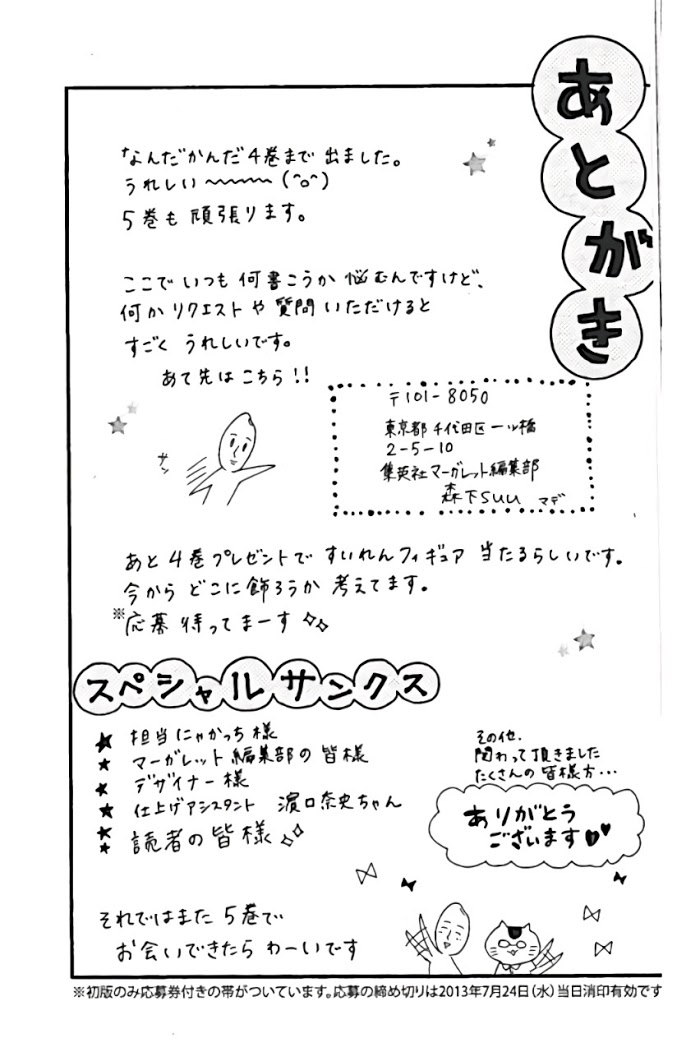 あとがき
なんだかんだ4巻まで出ました。
うれしい〜〜〜〜(^o^)
5巻も頑張ります。
ここでいつも何書こうか悩むんですけど、
何かリクエストや質問いただけると
すごくうれしいです。
あて先はこちら!!
〒101-8050
東京都千代田区一ツ橋
2-5-10
集英社マーガレット編集部
森下suu マデ
サッ
あと4巻プレゼントですいれんフィギュア当たるらしいです。
今からどこに飾ろうか考えてます。
※応募待ってまーす
スペシャルサンクス
★ 担当にゃかっち様
★ マーガレット編集部の皆様
★ デザイナー様
★ 仕上げアシスタント 濵口奈史ちゃん
★ 読者の皆様
その他、
関わって頂きました
たくさんの皆様方…
ありがとう
ございます♥♥
それではまた5巻で
お会いできたらわーいです
※初版のみ応募券付きの帯がついています。応募の締め切りは2013年7月24日(水)当日消印有効です